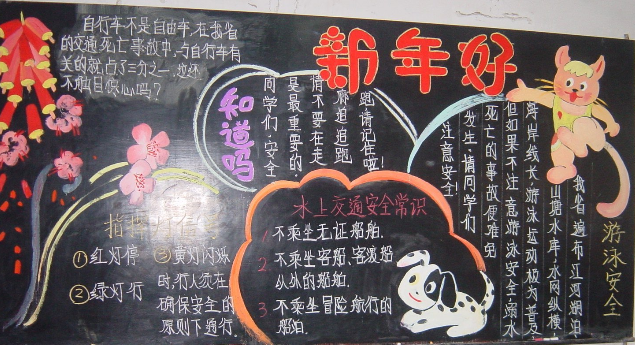 新年好
自行车不是自由车,在我省
的交通死亡事故中,与自行车有
关的就占了三分之一,这还
不触目惊心吗?
知道吗
同学们,安全
是最重要的,
情不要在走
廊追追跑
跑,请记住啦!
指挥灯信号
①红灯停
②绿灯行
③黄灯闪烁
时,行人须在
确保安全的
原则下通行.
水上交通安全常识
1 不乘坐无证船舶.
2 不乘坐客船、客渡船
从外的船舶.
3 不乘坐冒险航行的
船舶.
游泳安全
我省遍布江河湖泊
山塘水库,水网纵横
海岸线长,游泳运动极为普及
但如果不注意游泳安全,溺水
死亡的事故便难免
发生,请同学们
注意安全!